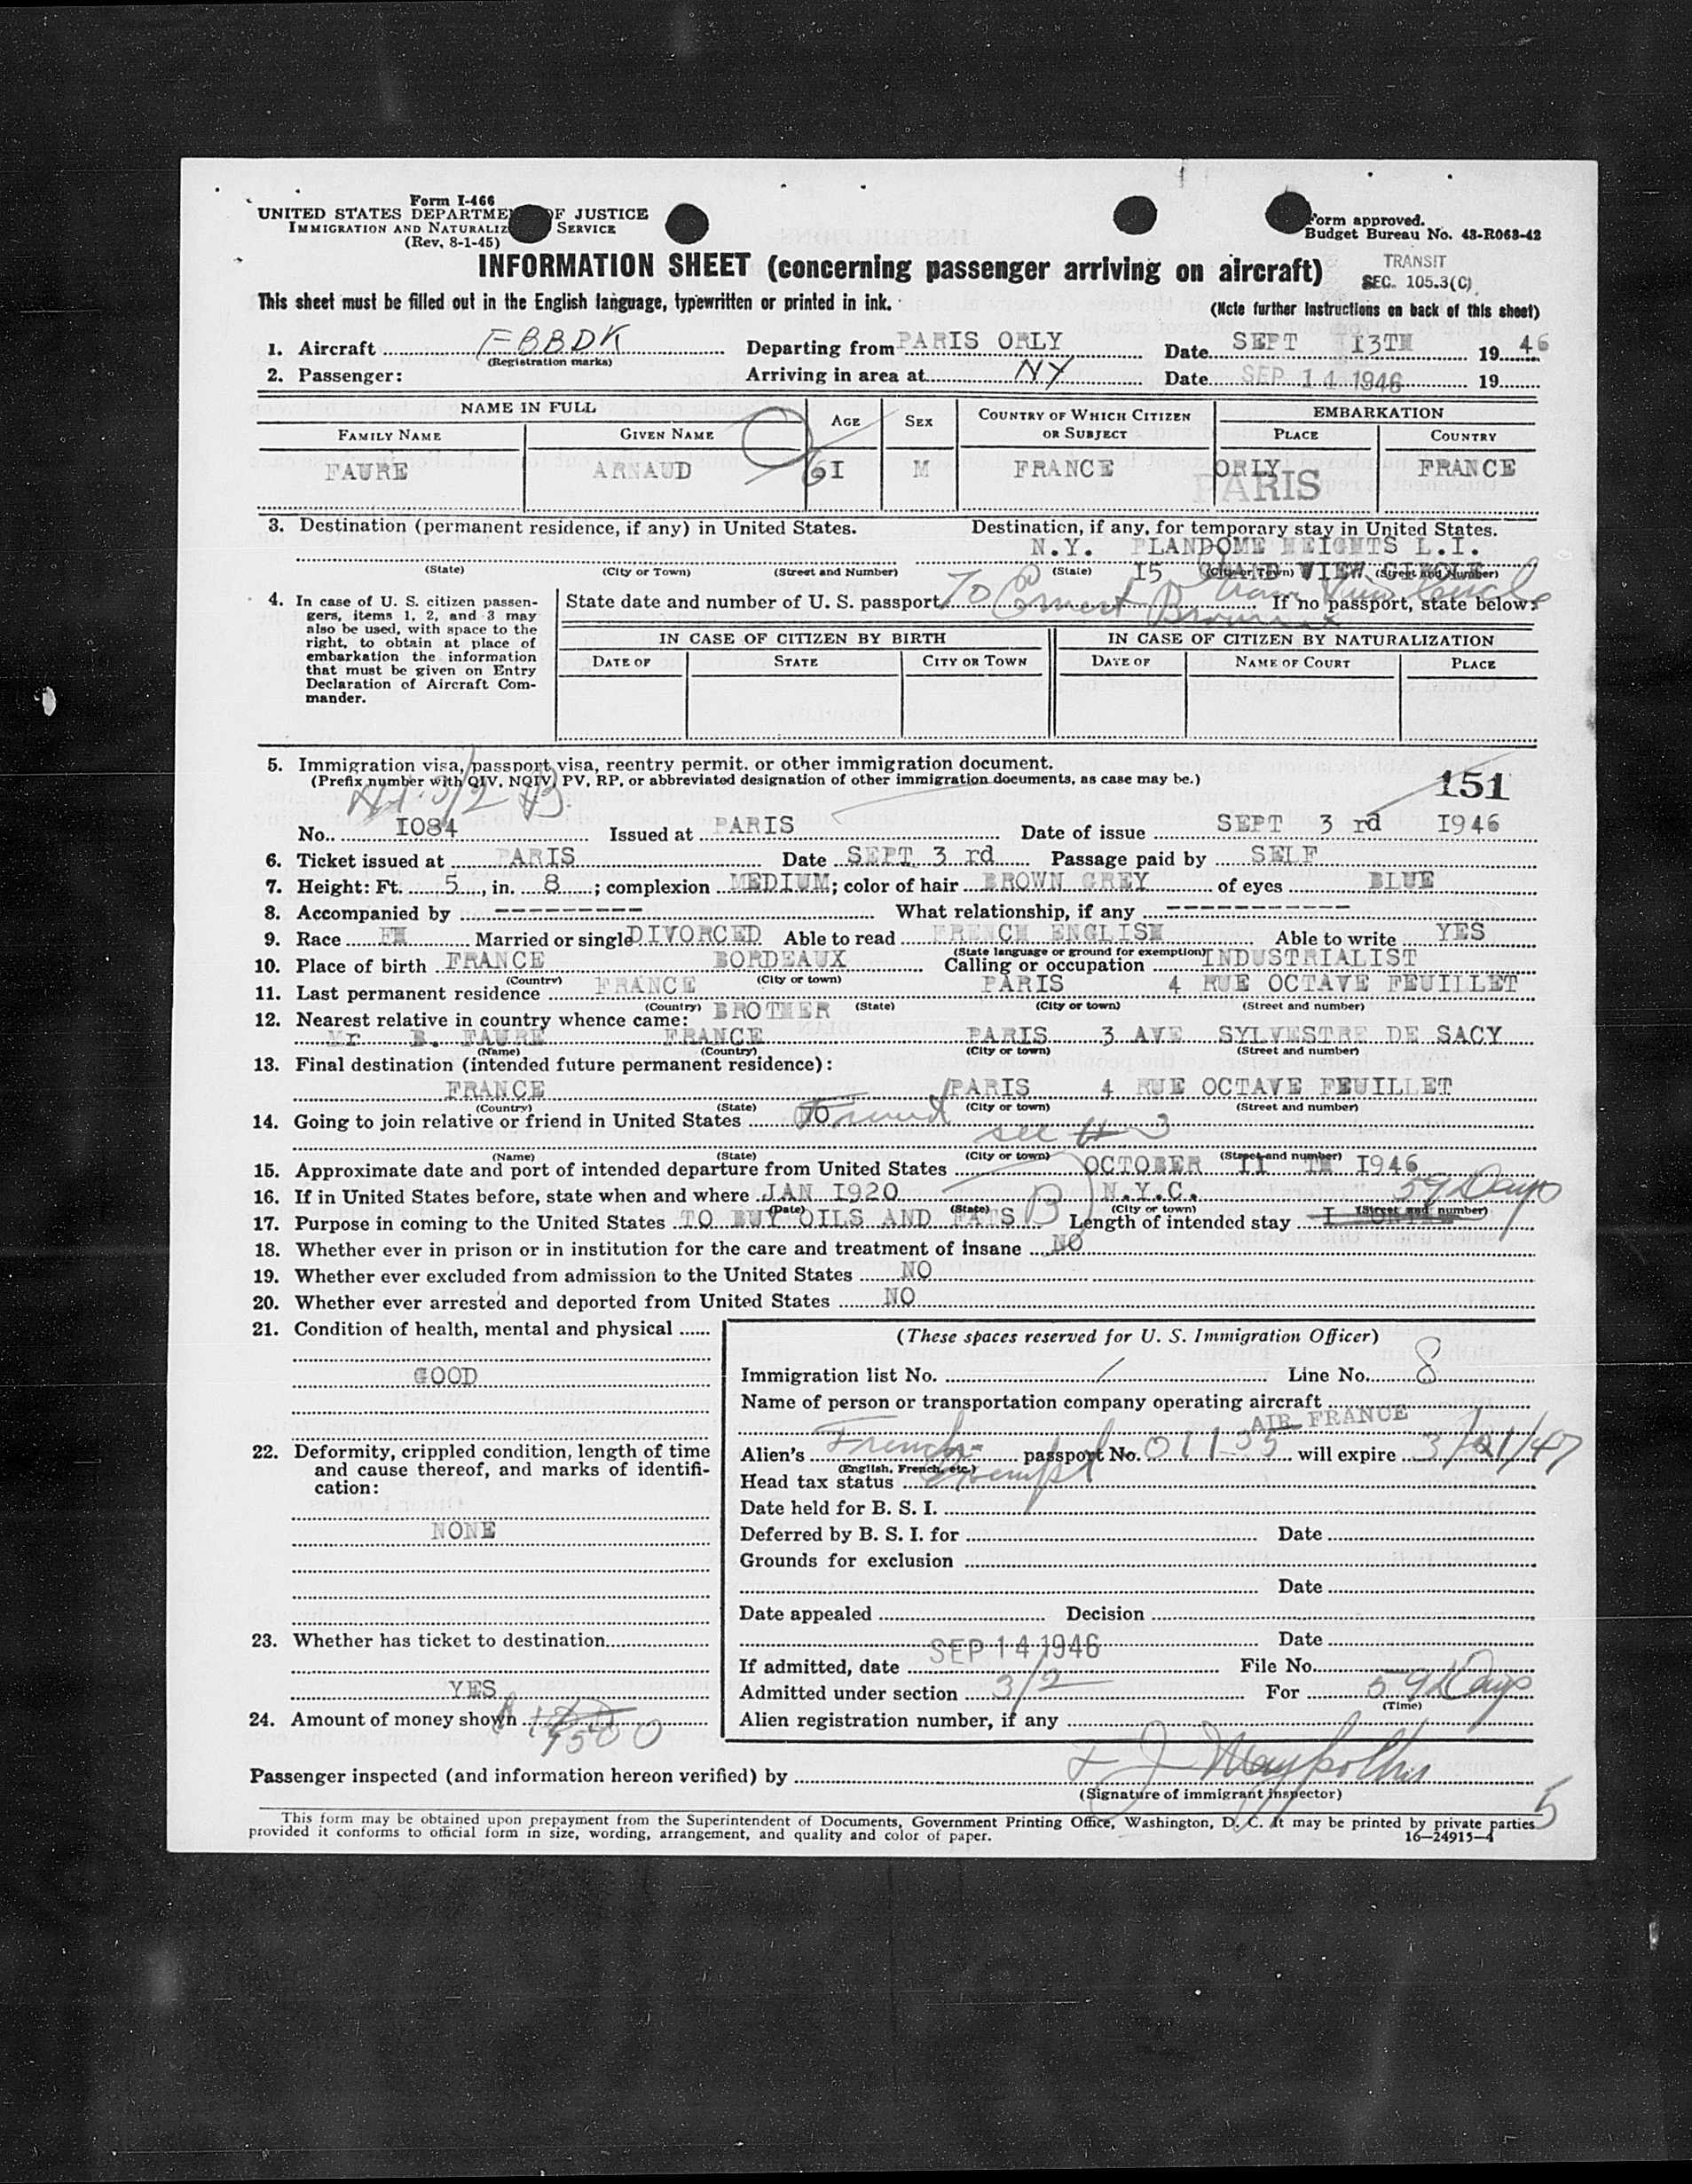 Form I-466
UNITED STATES DEPARTME OF JUSTICE
IMMIGRATION AND NATURALIZ SERVICE
(Rev. 8-1-45)
Form approved.
Budget Bureau No. 43-R063-42
INFORMATION SHEET (concerning passenger arriving on aircraft)
TRANSIT
SEC. 105.3(C)
This sheet must be filled out in the English language, typewritten or printed in ink.
(Note further instructions on back of this sheet)
1. Aircraft FBBDK Departing from PARIS ORLY Date SEPT 13TH 1946
(Registration marks)
2. Passenger: Arriving in area at NY Date SEP 14 1946 19
NAME IN FULL AGE SEX COUNTRY OF WHICH CITIZEN OR SUBJECT EMBARKATION
FAMILY NAME GIVEN NAME PLACE COUNTRY
FAURE ARNAUD 6I M FRANCE ORLY FRANCE
PARIS
3. Destination (permanent residence, if any) in United States. Destination, if any, for temporary stay in United States.
N.Y. PLANDOME HEIGHTS L.I.
(State) (City or Town) (Street and Number) (State) I5 (City or Town) VIEW CIRCLE (Street and Number)
4. In case of U. S. citizen passengers, items 1, 2, and 3 may also be used, with space to the right, to obtain at place of embarkation the information that must be given on Entry Declaration of Aircraft Commander.
State date and number of U. S. passport To If no passport, state below:
IN CASE OF CITIZEN BY BIRTH IN CASE OF CITIZEN BY NATURALIZATION
DATE OF STATE CITY OR TOWN DATE OF NAME OF COURT PLACE
5. Immigration visa, passport visa, reentry permit, or other immigration document.
(Prefix number with QIV, NQIV, PV, RP, or abbreviated designation of other immigration documents, as case may be.)
151
3/2
No. I084 Issued at PARIS Date of issue SEPT 3 rd I946
6. Ticket issued at PARIS Date SEPT 3 rd Passage paid by SELF
7. Height: Ft. 5, in. 8; complexion MEDIUM; color of hair BROWN GREY of eyes BLUE
8. Accompanied by --------- What relationship, if any ------------
9. Race Married or single DIVORCED Able to read FRENCH ENGLISH Able to write YES
(State language or ground for exemption)
10. Place of birth FRANCE BORDEAUX Calling or occupation INDUSTRIALIST
(Country) (City or town)
11. Last permanent residence FRANCE PARIS 4 RUE OCTAVE FEUILLET
(Country) (State) (City or town) (Street and number)
12. Nearest relative in country whence came: BROTHER
Mr FAURE FRANCE PARIS 3 AVE SYLVESTRE DE SACY
(Name) (Country) (City or town) (Street and number)
13. Final destination (intended future permanent residence):
FRANCE PARIS 4 RUE OCTAVE FEUILLET
(Country) (State) (City or town) (Street and number)
14. Going to join relative or friend in United States NO Friend
see # 3
(Name) (State) (City or town) (Street and number)
15. Approximate date and port of intended departure from United States OCTOBER II TH I946
16. If in United States before, state when and where JAN I920 N.Y.C. 59 Days
(Date) (State) (City or town) (Street and number)
17. Purpose in coming to the United States TO BUY OILS AND FATS B Length of intended stay I
18. Whether ever in prison or in institution for the care and treatment of insane NO
19. Whether ever excluded from admission to the United States NO
20. Whether ever arrested and deported from United States NO
21. Condition of health, mental and physical
GOOD
22. Deformity, crippled condition, length of time and cause thereof, and marks of identification:
NONE
23. Whether has ticket to destination
YES
24. Amount of money shown 1500
(These spaces reserved for U. S. Immigration Officer)
Immigration list No. 1 Line No. 8
Name of person or transportation company operating aircraft
AIR FRANCE
Alien's French passport No. 01135 will expire 3/21/47
(English, French, etc.)
Head tax status Exempt
Date held for B. S. I.
Deferred by B. S. I. for Date
Grounds for exclusion
Date
Date appealed Decision
Date
If admitted, date SEP 14 1946 File No.
Admitted under section 3/2 For 59 Days
(Time)
Alien registration number, if any
Passenger inspected (and information hereon verified) by
(Signature of immigrant inspector)
5
This form may be obtained upon prepayment from the Superintendent of Documents, Government Printing Office, Washington, D. C. It may be printed by private parties
provided it conforms to official form in size, wording, arrangement, and quality and color of paper.
16—24915-4